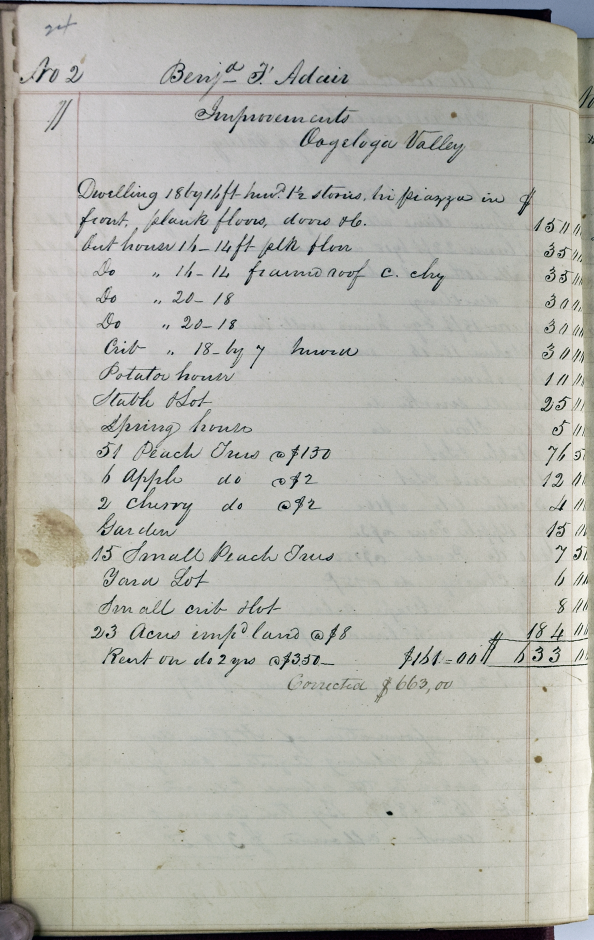 24
No 2 Benja F. Adair
Improvements
Oogeloga Valley
Dwelling 18 by 16 ft hwd. 1½ stories, piazza in $
front, plank floors, doors &c. 150 00
Out house 16-14 ft plk floor 35 00
Do " 16-14 framed roof c. chy 35 00
Do " 20-18 30 00
Do " 20-18 30 00
Crib " 18-by 7 hewed 30 00
Potatoe house 10 00
Stable & Lot 25 00
Spring house 5 00
51 Peach Trees @ $1 50 76 50
6 Apple do @ $2 12 00
2 Cherry do @ $2 4 00
Garden 15 00
15 Small Peach Trees 7 50
Yard Lot 6 00
Small crib & lot 8 00
23 Acres imp'd land @ $8 184 00
Rent on do 2 yrs @ $3 50 $161=00 $ 633 00
Corrected $663,00